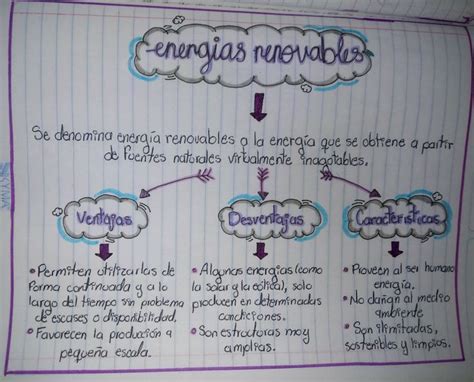 energias renovables
Se denomina energía renovables a la energía que se obtiene a partir
de fuentes naturales virtualmente inagotables.
Ventajas
• Permiten utilizarlas de
forma continuada y a lo
largo del tiempo sin problema
de escases o disponibilidad.
• Favorecen la producción a
pequeña escala.
Desventajas
• Algunas energías (como
la solar y la eólica), solo
producen en determinadas
condiciones.
• Son estructuras muy
amplias.
Características
• Proveen al ser humano
energía.
• No dañan al medio
ambiente
• Son ilimitadas,
sostenibles y limpios.